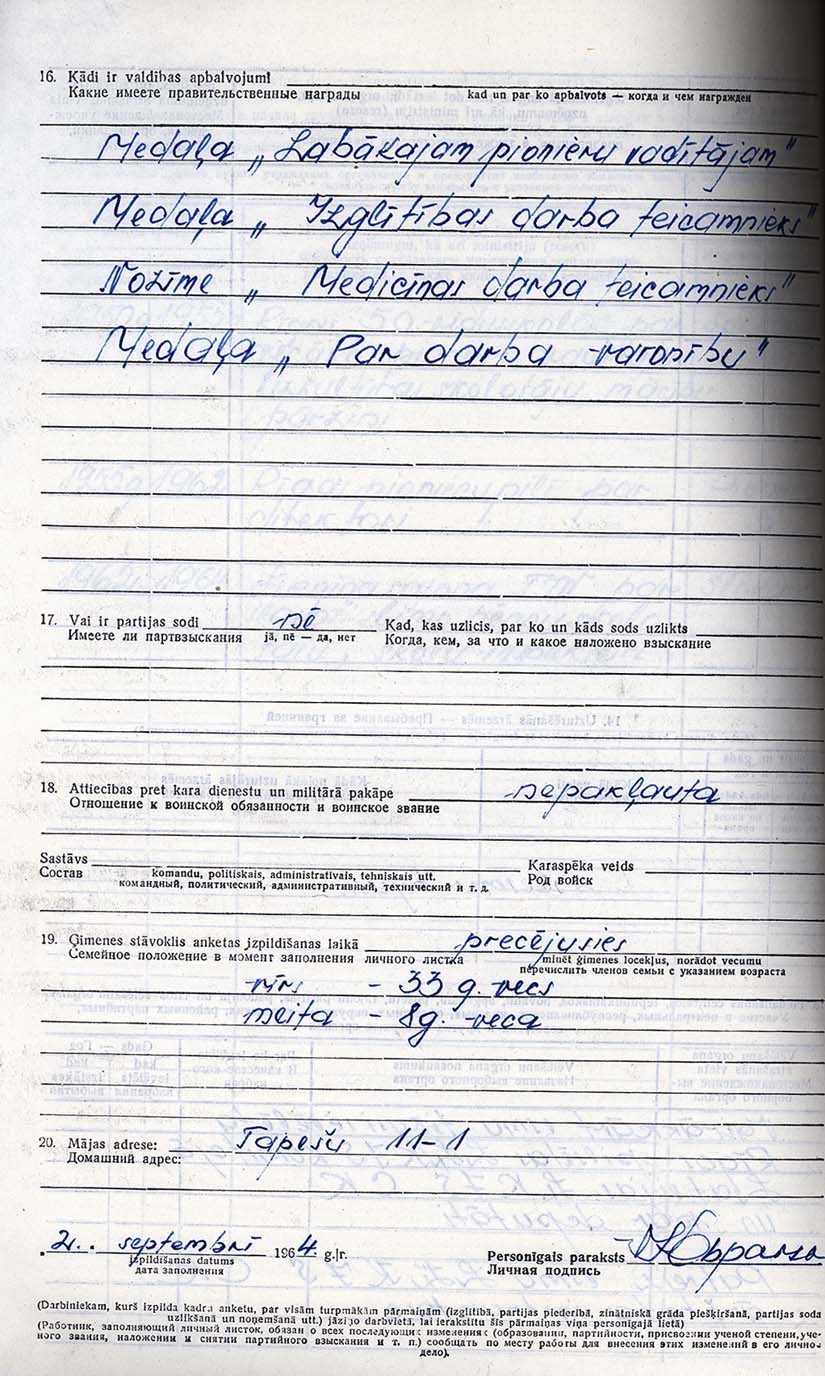 16. Ķādi ir valdības apbalvojumi
Какие имеете правительственные награды kad un par ko apbalvots — когда и чем награжден
Medaļa „Labākajam pionieru vadītājam"
Medaļa „Izglītības darba teicamnieks"
Nozīme „Medicīnas darba teicamnieks"
Medaļa „Par darba varonību"
17. Vai ir partijas sodi nē Kad, kas uzlicis, par ko un kāds sods uzlikts
Имеете ли партвзыскания jā, nē — да, нет Когда, кем, за что и какое наложено взыскание
18. Attiecības pret kara dienestu un militārā pakāpe nepakļauta
Отношение к воинской обязанности и воинское звание
Sastāvs Karaspēka veids
Состав komandu, politiskais, administratīvais, tehniskais utt. Род войск
командный, политический, административный, технический и т. д.
19. Ģimenes stāvoklis anketas izpildīšanas laikā precējusies
Семейное положение в момент заполнения личного листка minēt ģimenes locekļus, norādot vecumu
перечислить членов семьи с указанием возраста
vīrs - 33 g. vecs
meita - 8g. veca
20. Mājas adrese: Tapešu 11-1
Домашний адрес:
2. septembrī 1964 g.|г.
izpildīšanas datums Personīgais paraksts
дата заполнения Личная подпись
(Darbiniekam, kurš izpilda kadru anketu, par visām turpmākām pārmaiņām (izglītībā, partijas piederībā, zinātniskā grāda piešķiršanā, partijas soda
uzlikšanā un noņemšanā utt.) jāziņo darbvietā, lai ierakstītu šīs pārmaiņas viņa personīgajā lietā)
(Работник, заполняющий личный листок, обязан о всех последующих изменениях (образовании, партийности, присвоении ученой степени, уче-
ного звания, наложении и снятии партийного взыскания и т. п.) сообщать по месту работы для внесения этих изменений в его лично
дело).